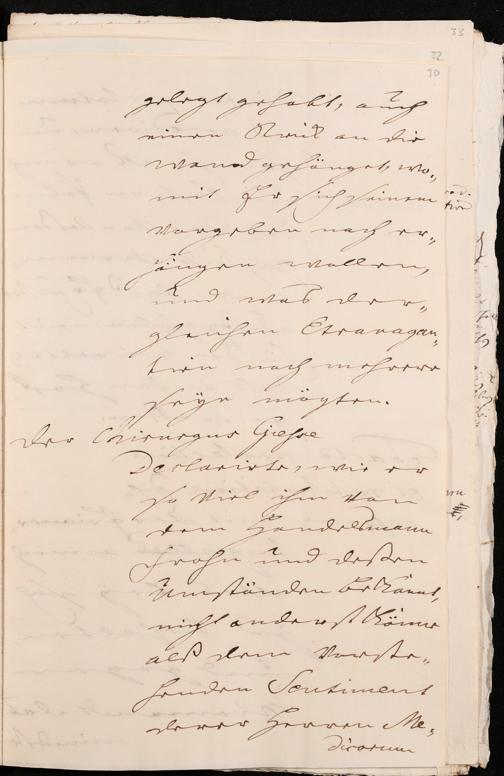 33
32
30
gelegt gehabt, auch
einen Strick an die
wand gehänget, wo-,
mit Er sich seinem
vorgeben nach er-,
hängen wollen,
und was der-,
gleichen Etravagan-,
tien noch mehrere
seyn mögten.
Der Chirurgus Giesse
Declarirte, wie er
so viel ihm von
dem Handelsmann
Frohn und deßen
Umständen bekannt,
nicht anderst könne
alß dem vorste-,
henden Sentiment
derer Herren Me-,
dicorum